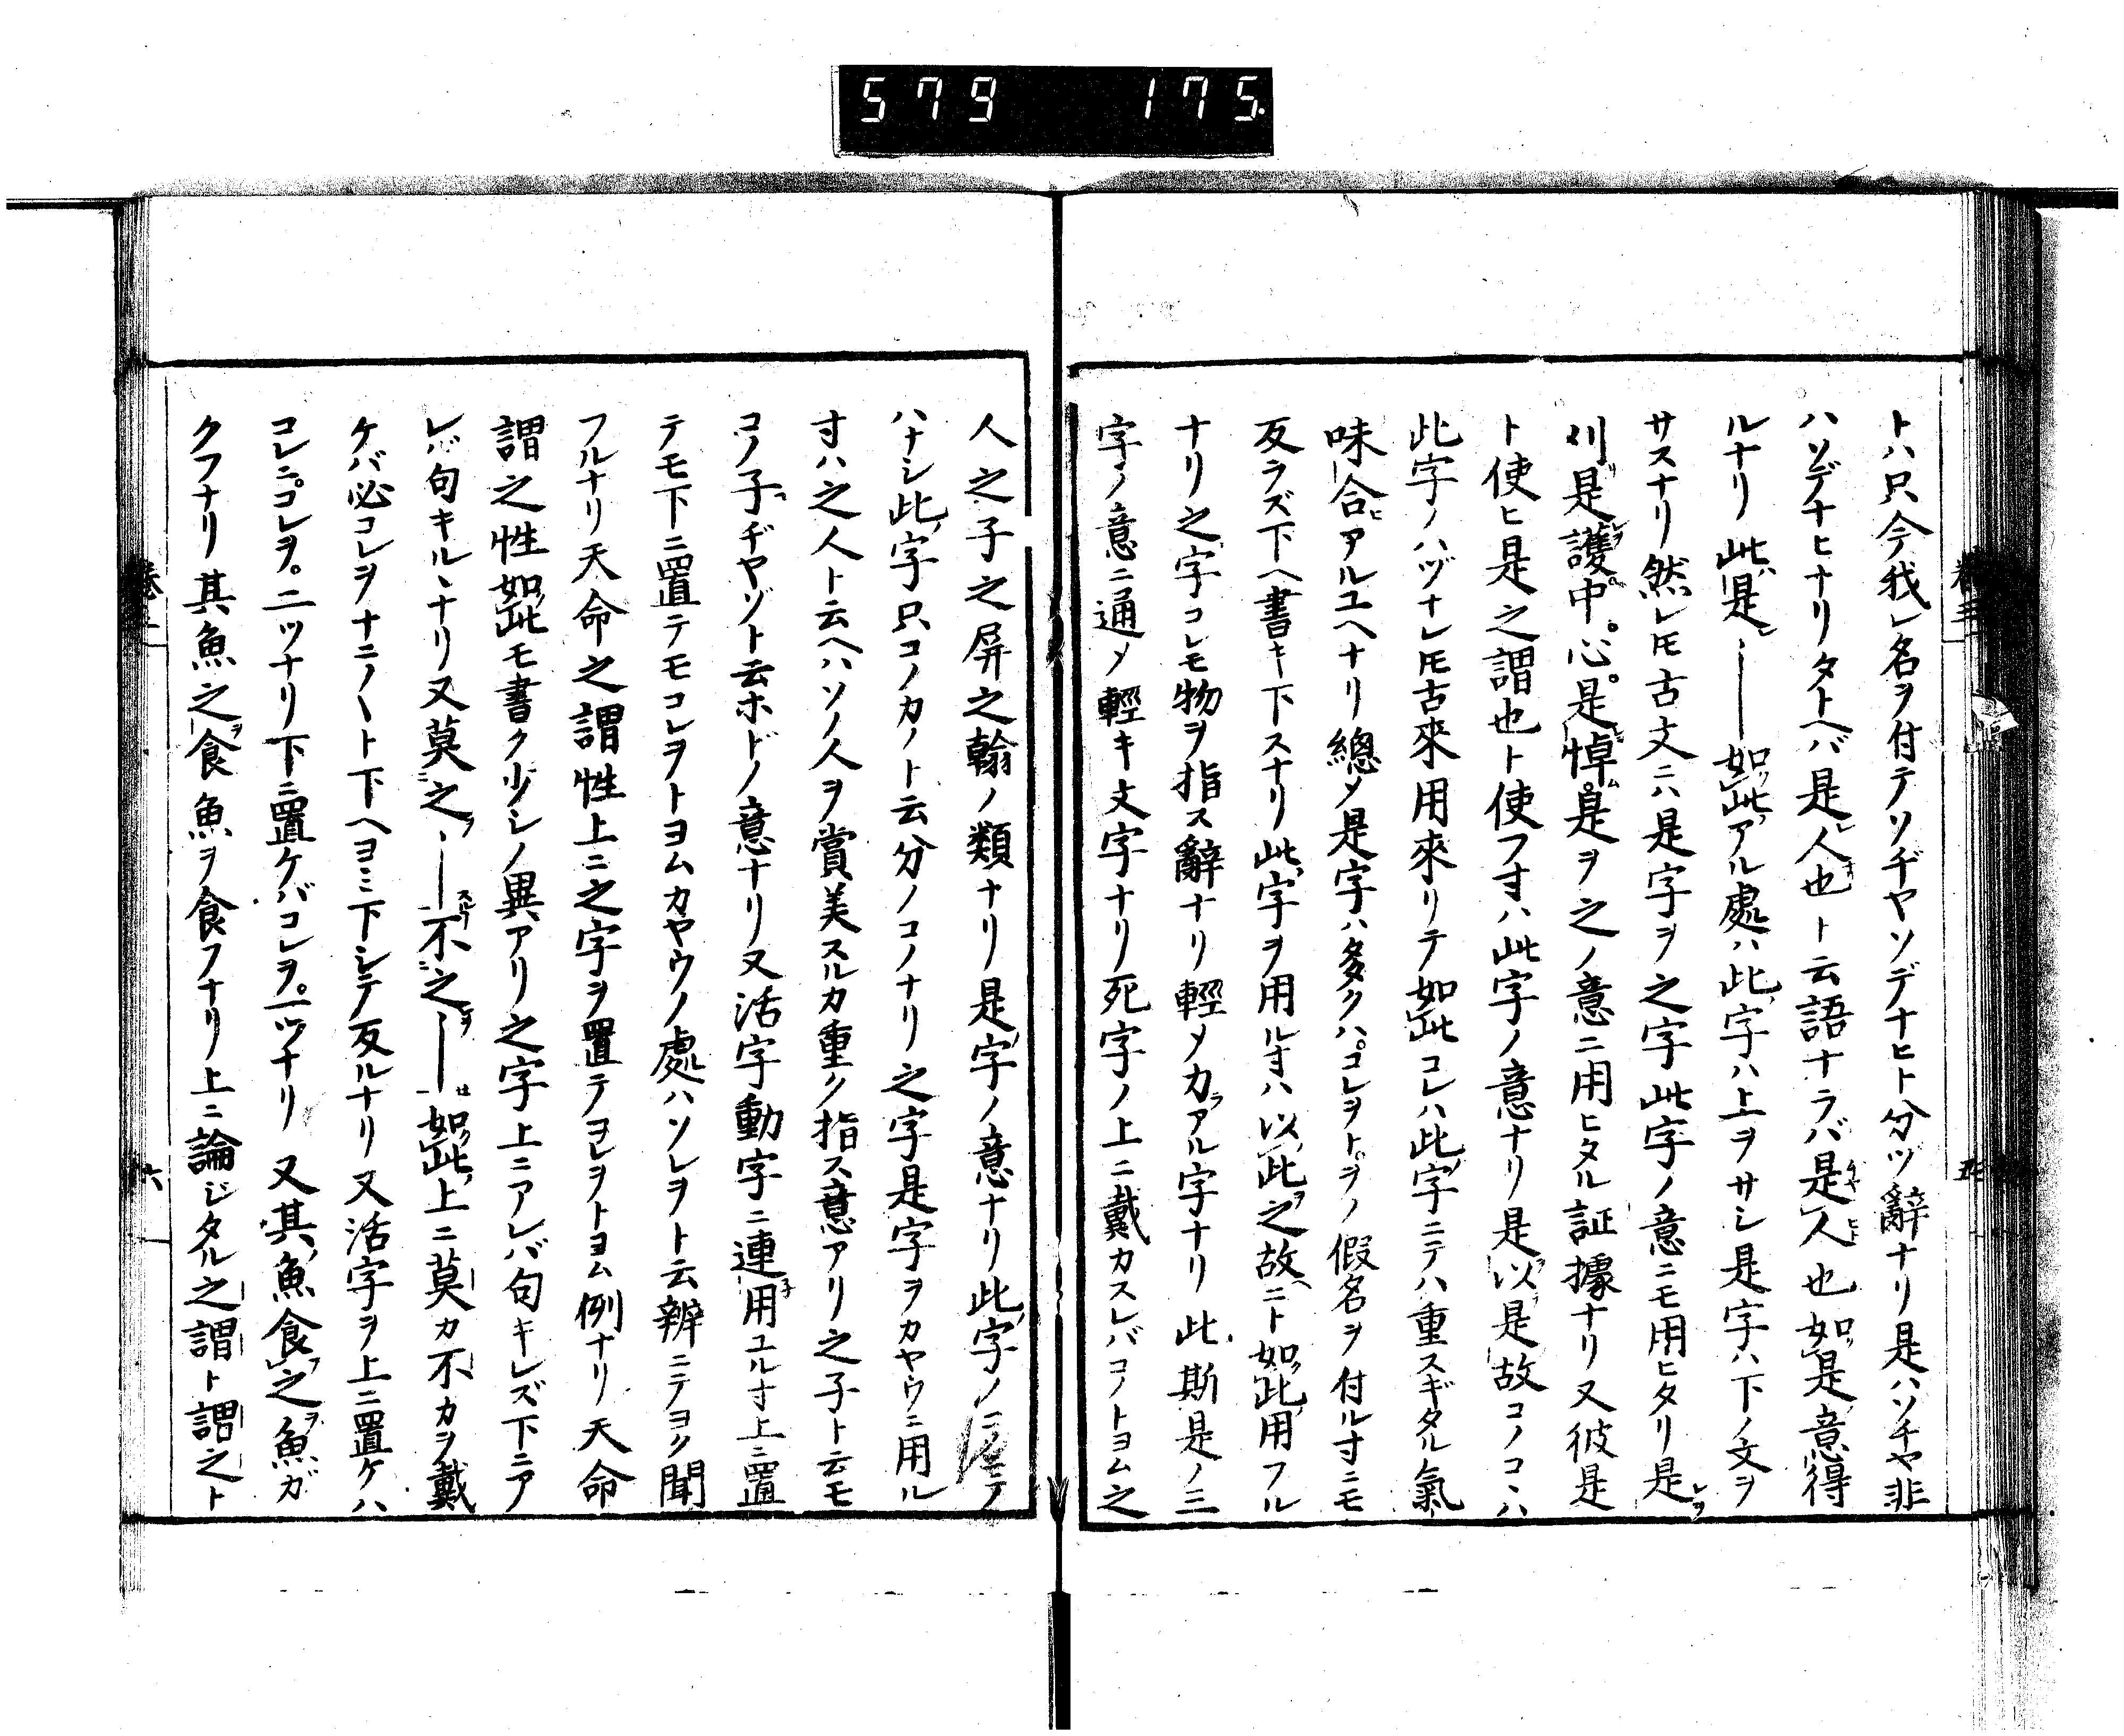 579 175.
トハ只今我レ名ヲ付テソヂヤソデナヒト分ツ辭ナリ是ハソチヤ非
ハソデナヒナリタトヘバ是人也ト云語ナラバ是人也如是意得
ルナリ此是――如此アル處ハ此字ハ上ヲサシ是字ハ下ノ文ヲ
サスナリ然レ𪜈古文ニハ是字ヲ之字此字ノ意ニモ用ヒタリ是
刈是護中心是悼是ヲ之ノ意ニ用ヒタル証據ナリ又彼是
ト使ヒ是之謂也ト使フ寸ハ此字ノ意ナリ是以是故コノコヽハ
此字ノハヅナレ𪜈古來用來リテ如此コレハ此字ニテハ重スギタル氣
味合アルユヘナリ總〆是字ハ多クハコレヲトヲノ假名ヲ付ル寸ニモ
反ラズ下ヘ書キ下スナリ此字ヲ用ル寸ハ以此之故ニト如此用フル
ナリ之字コレモ物ヲ指ス辭ナリ輕メカアル字ナリ此斯是ノ三
字ノ意ニ通〆輕キ文字ナリ死字ノ上ニ戴カスレバコノトヨム之
人之子之屏之翰ノ類ナリ是字ノ意ナリ此字ノ
ハナシ此字只コノカノト云分ノコノナリ之字是字ヲカヤウニ用ル
寸ハ之人ト云ヘハソノ人ヲ賞美スルカ重ク指ス意アリ之子ト云モ
コノ子ヂヤゾト云ホドノ意ナリ又活字動字ニ連用ユル寸上ニ置
テモ下ニ置テモコレヲトヨムカヤウノ處ハソレヲト云辨ニテヨク聞
フルナリ天命之謂性上ニ之字ヲ置テコレヲトヨム例ナリ天命
謂之性如此モ書ク少シノ異アリ之字上ニアレバ句キレズ下ニア
レバ句キルヽナリ又莫之――不之――如此上ニ莫カ不カヲ戴
ケバ必コレヲナニ〱ト下ヘヨミ下シテ反ルナリ又活字ヲ上ニ置ケハ
コレニコレヲ二ツナリ下ニ置ケバコレヲ一ツナリ又其魚食之魚ガ
クフナリ其魚之食魚ヲ食フナリ上ニ論ジタル之謂ト謂之ト
六